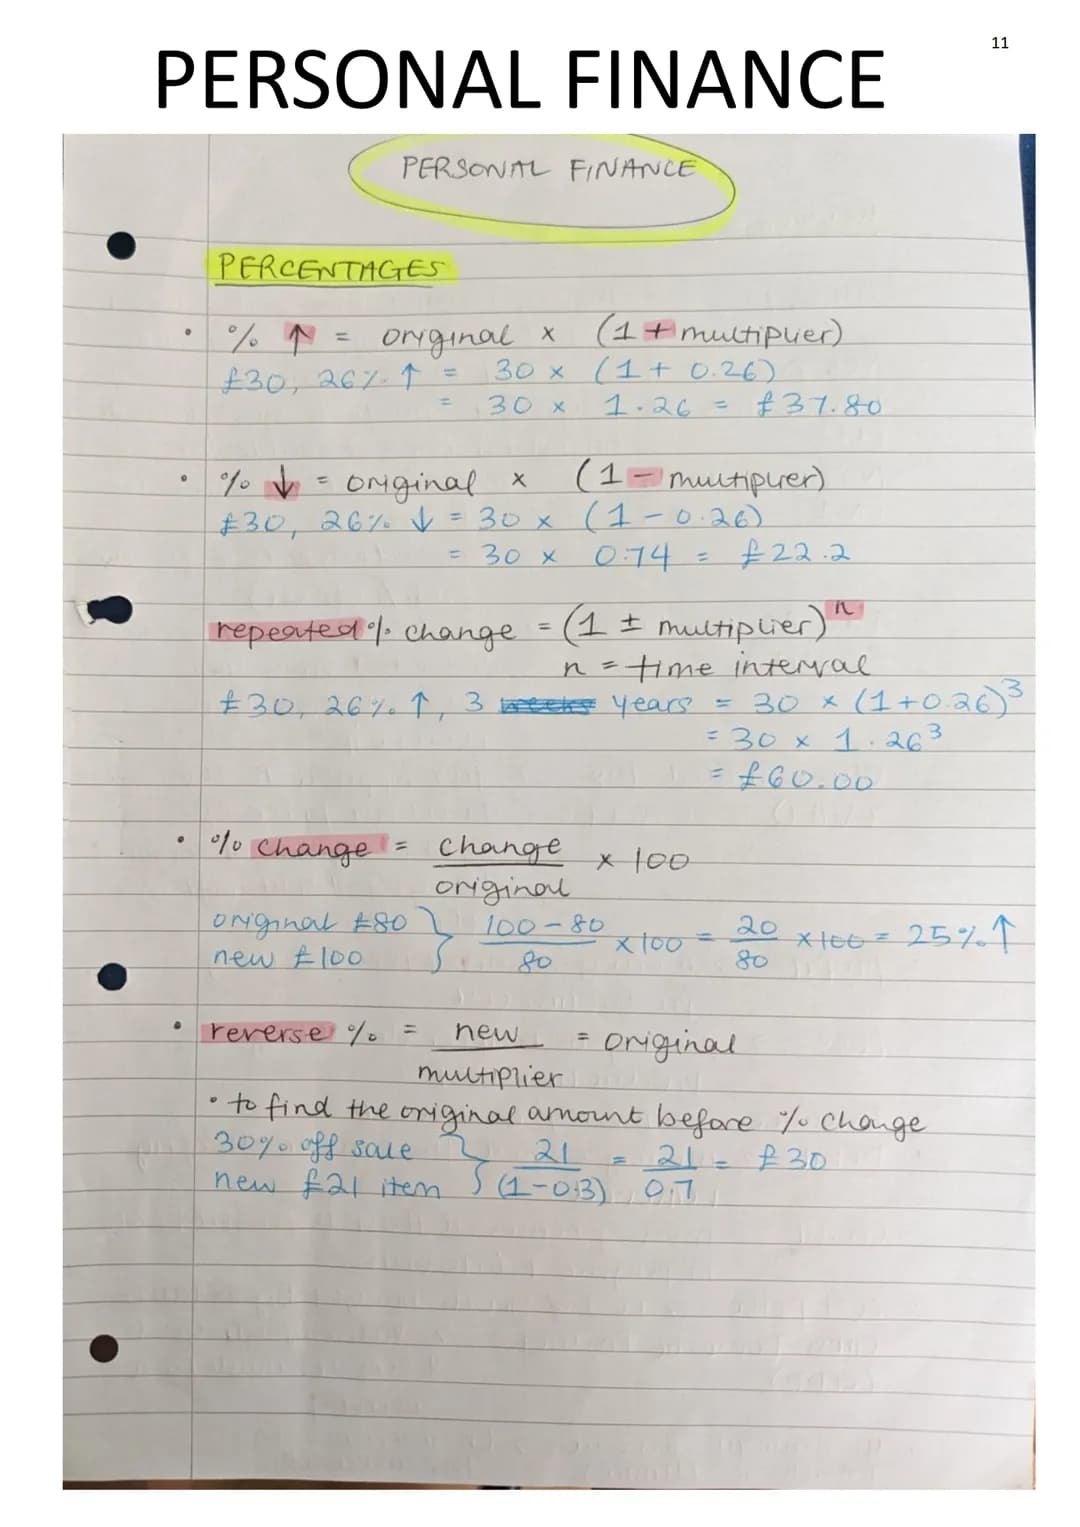 11
PERSONAL FINANCE
PERSONAL FINANCE
PERCENTAGES
• % ↑ = original × (1 + multiplier)
£30, 26% ↑ = 30 × (1 + 0.26)
= 30 × 1.26 = £37.80
• % ↓ = original × (1 - multiplier)
£30, 26% ↓ = 30 × (1 - 0.26)
= 30 × 0.74 = £22.2
repeated % change = (1 ± multiplier)ⁿ
n = time interval
£30, 26% ↑, 3 weeks years = 30 × (1+0.26)³
= 30 × 1.26³
= £60.00
• % change = change / original × 100
original £80 } 100 - 80 / 80 × 100 = 20 / 80 × 100 = 25% ↑
new £100
• reverse % = new / multiplier = original
• to find the original amount before % change
30% off sale } 21 / (1-0.3) = 21 / 0.7 = £30
new £21 item